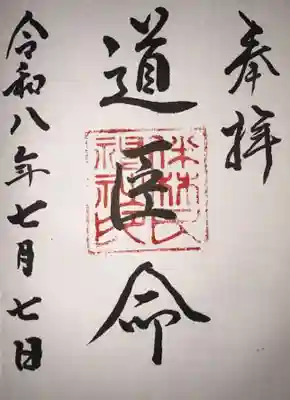 奉拝
道臣命
令和八年七月七日